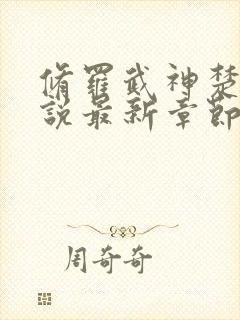 脩羅武神楚
說最新章節
周奇奇